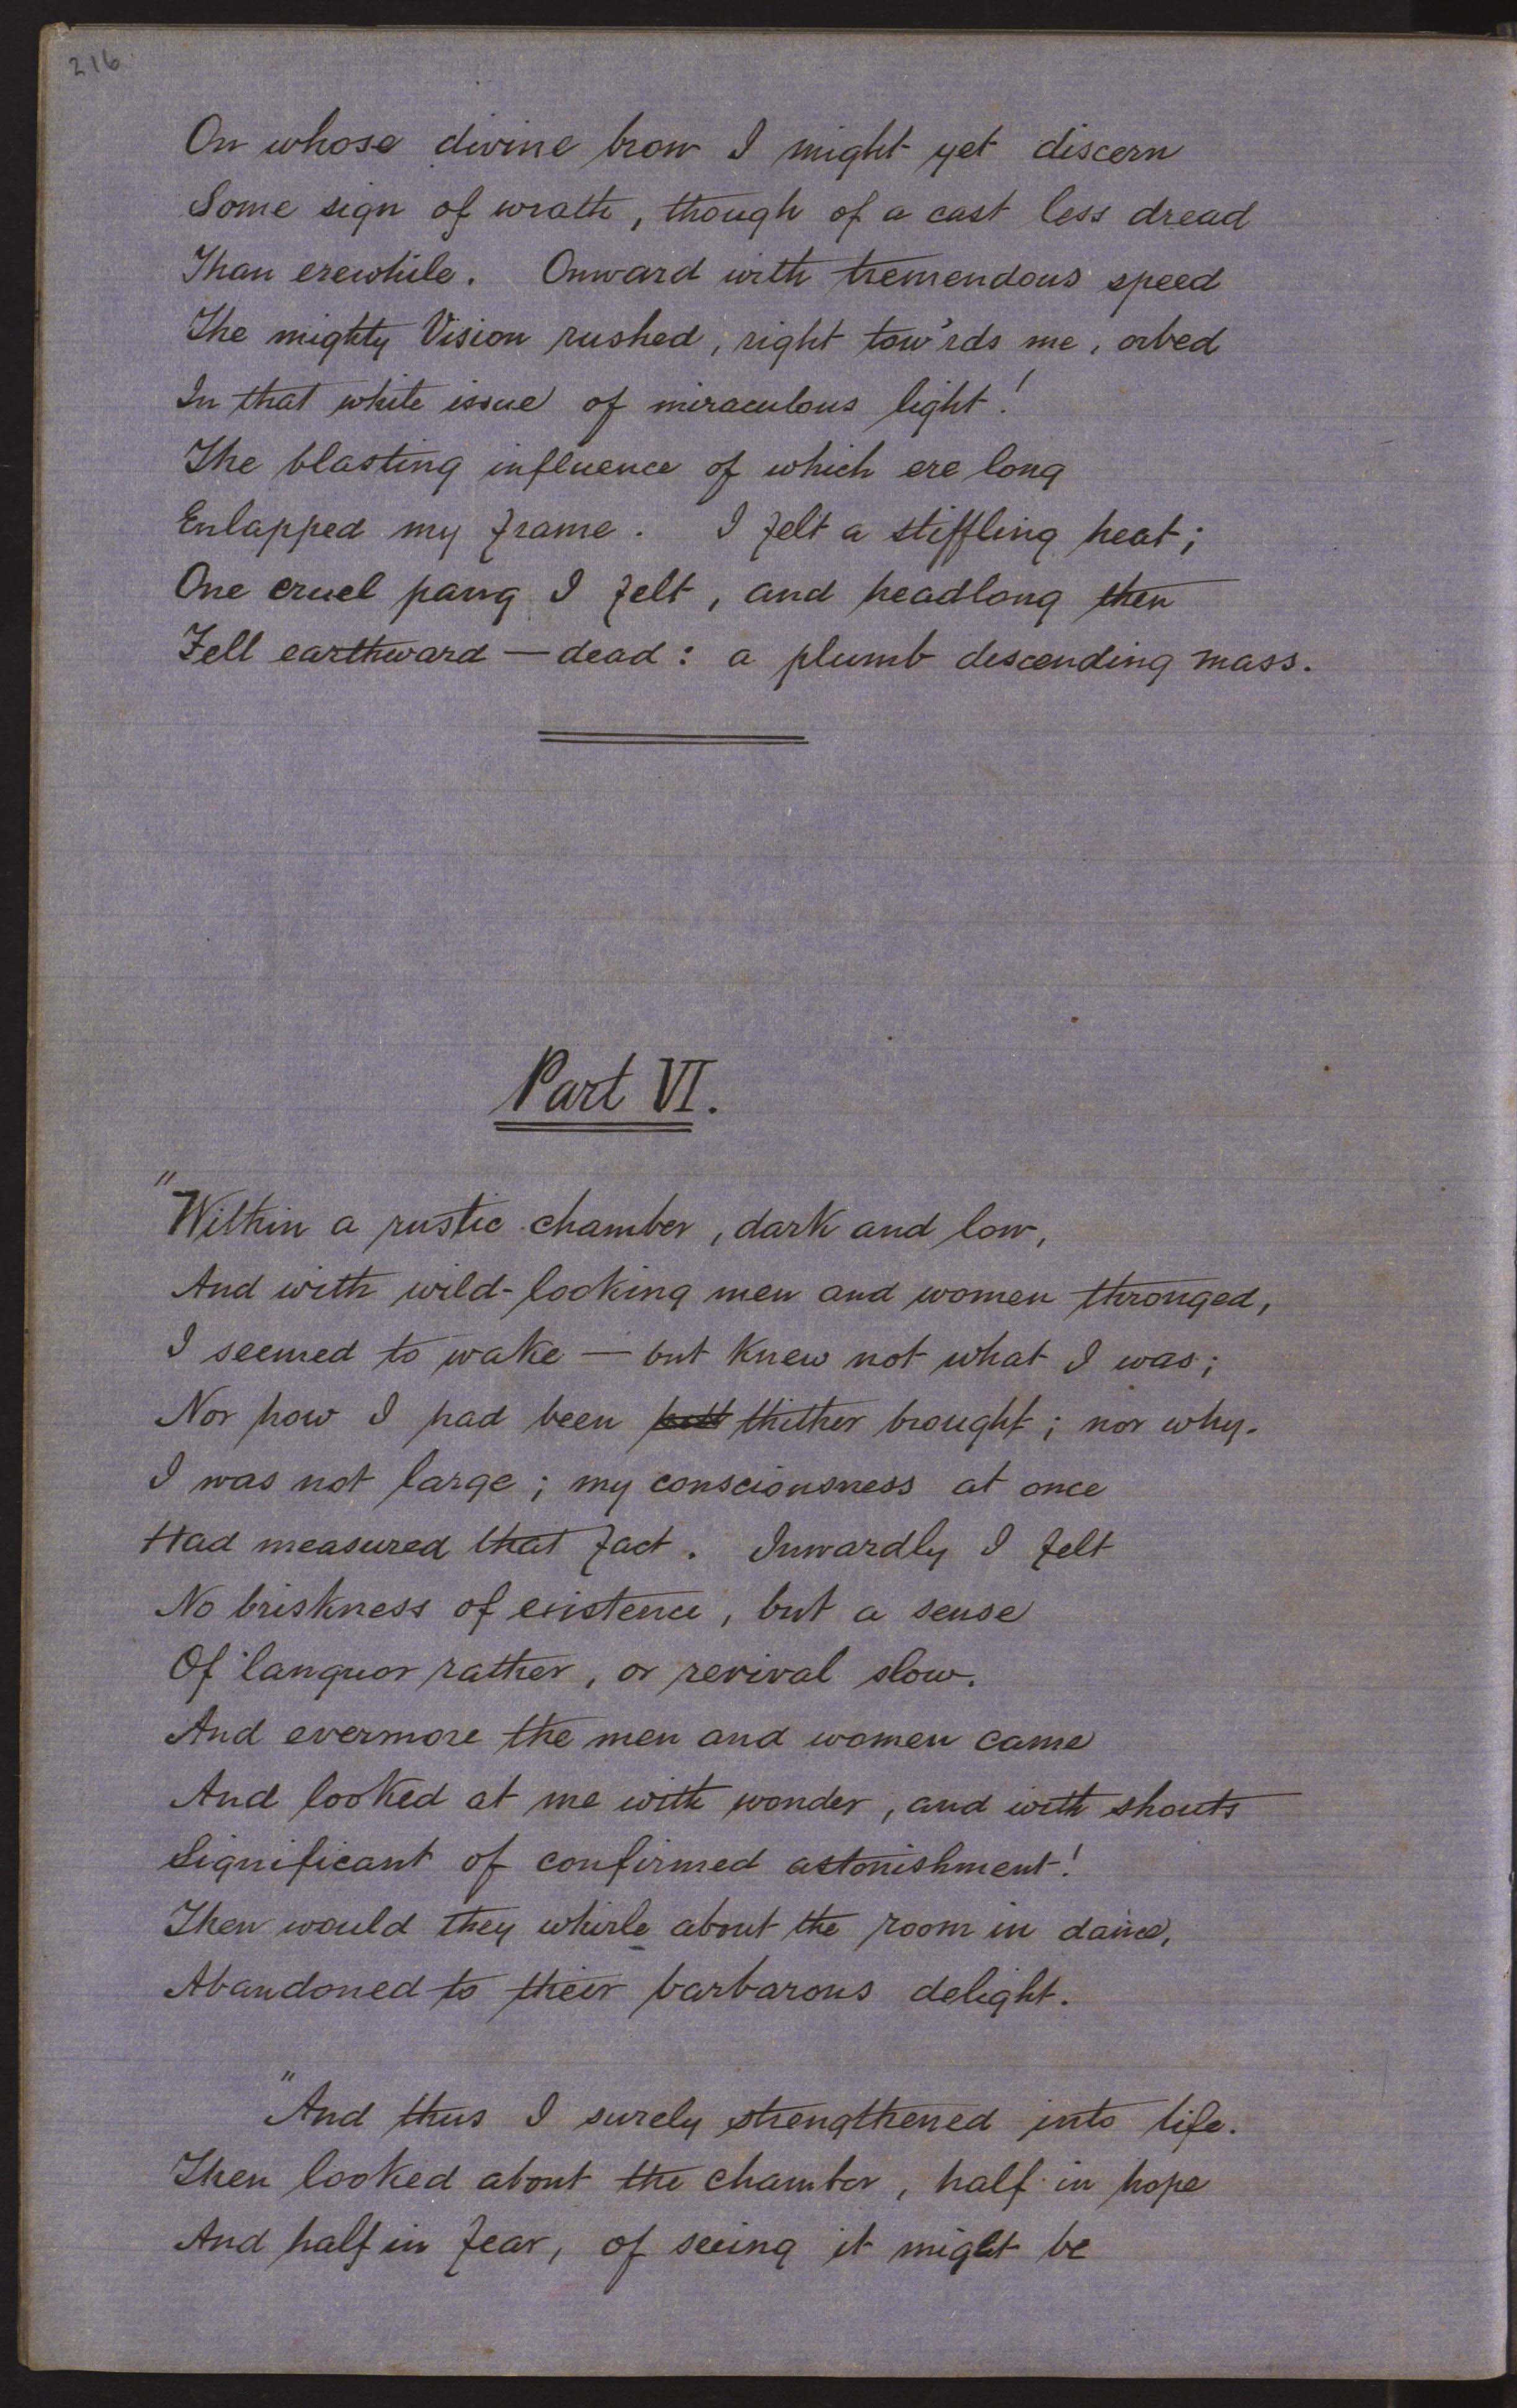 216
On whose divine brow I might yet discern
Some sign of wrath, though of a cast less dread
Than erewhile. Onward with tremendous speed
The mighty Vision rushed, right tow'rds me, orbed
In that white issue of miraculous light!
The blasting influence of which ere long
Enlapped my frame. I felt a stiffling heat;
One cruel pang I felt, and headlong then
Fell earthward — dead: a plumb descending mass.
Part VI.
"Within a rustic chamber, dark and low,
And with wild-looking men and women thronged,
I seemed to wake — but knew not what I was;
Nor how I had been thither brought; nor why.
I was not large; my consciousness at once
Had measured that fact. Inwardly I felt
No briskness of existence, but a sense
Of languor rather, or revival slow.
And evermore the men and women came
And looked at me with wonder, and with shouts
Significant of confirmed astonishment!
Then would they whirle about the room in dance,
Abandoned to their barbarous delight.
"And thus I surely strengthened into life.
Then looked about the chamber, half in hope
And half in fear, of seeing it might be